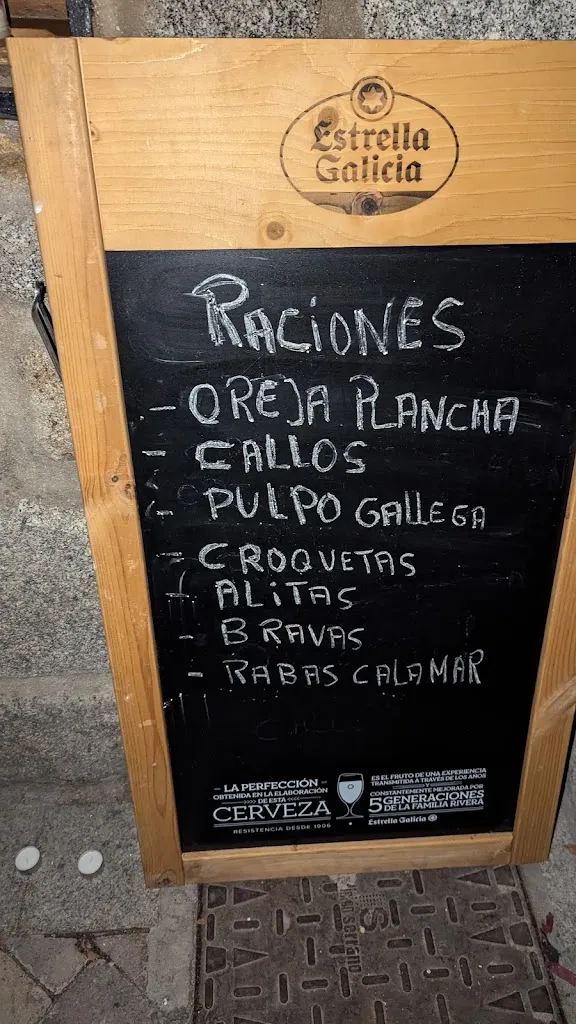 Estrella
Galicia
RACiONES
- OREJA PLANCHA
- CALLOS
- PULPO GALLEGA
- CROQUETAS
- ALiTAS
- BRAVAS
- RABAS CALAMAR
- LA PERFECCIÓN -
OBTENIDA EN LA ELABORACIÓN
>>>> DE ESTA <<<<
CERVEZA
RESISTENCIA DESDE 1906
ES EL FRUTO DE UNA EXPERIENCIA
TRANSMITIDA A TRAVÉS DE LOS AÑOS
Y
CONSTANTEMENTE MEJORADA POR
5 GENERACIONES
DE LA FAMILIA RIVERA
Estrella Galicia